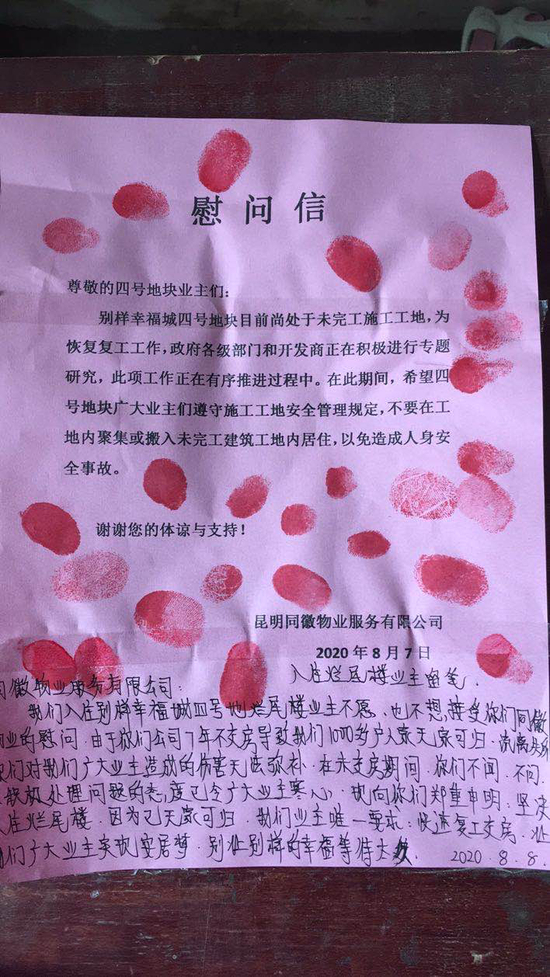 慰问信
尊敬的四号地块业主们:
别样幸福城四号地块目前尚处于未完工施工工地,为
恢复复工工作,政府各级部门和开发商正在积极进行专题
研究,此项工作正在有序推进过程中。在此期间,希望四
号地块广大业主们遵守施工工地安全管理规定,不要在工
地内聚集或搬入未完工建筑工地内居住,以免造成人身安
全事故。
谢谢您的体谅与支持!
昆明同徽物业服务有限公司
2020年8月7日
入住烂尾楼业主留笔.
同徽物业服务有限公司:
我们入住别样幸福城四号地烂尾楼业主不愿,也不想,接受你们同徽
物业的慰问.由于你们公司7年不交房导致我们1000多户人家无家可归.流离失所
你们对我们广大业主造成的伤害无法弥补.在未交房期间.你们不闻.不问.
处理问题的态度已令广大业主寒心,现向你们郑重申明:坚决
入住烂尾楼.因为已无家可归.我们业主唯一要求:快速复工交房.让
我们广大业主实现安居梦.别让别样的幸福等待太久
2020.8.8.